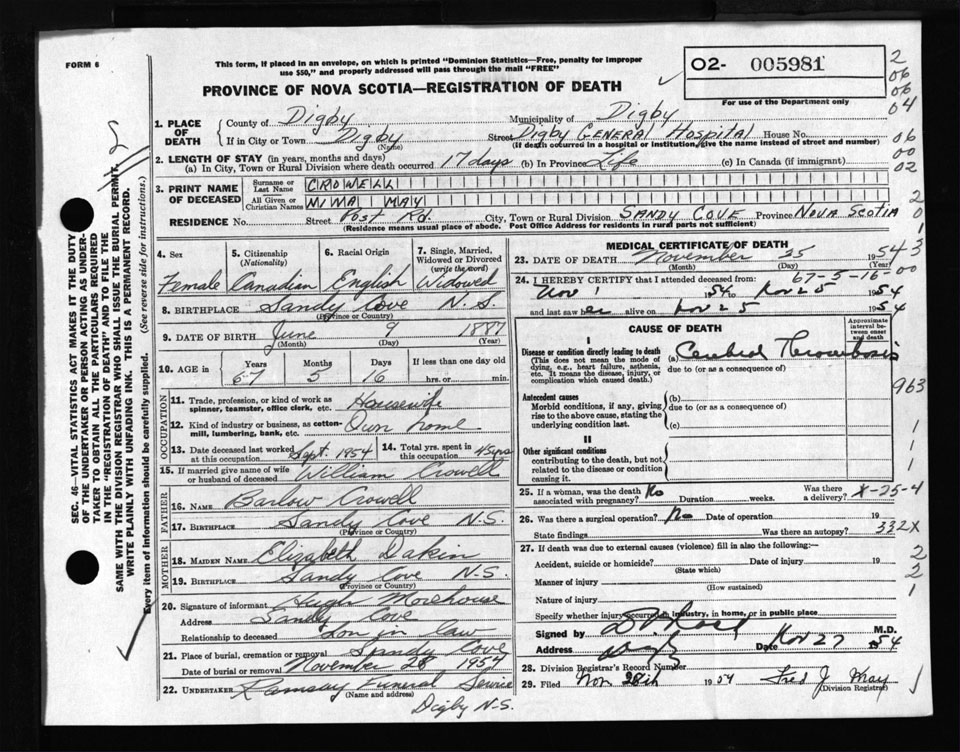 FORM 6
This form, if placed in an envelope, on which is printed "Dominion Statistics—Free, penalty for improper
use $50," and properly addressed will pass through the mail "FREE"
PROVINCE OF NOVA SCOTIA—REGISTRATION OF DEATH
O2- 005981
For use of the Department only
2
06
06
04
06
00
02
SEC. 46—VITAL STATISTICS ACT MAKES IT THE DUTY
OF THE UNDERTAKER OR PERSON ACTING AS UNDER-
TAKER TO OBTAIN ALL THE PARTICULARS REQUIRED
IN THE "REGISTRATION OF DEATH" AND TO FILE THE
SAME WITH THE DIVISION REGISTRAR WHO SHALL ISSUE THE BURIAL PERMIT.
WRITE PLAINLY WITH UNFADING INK. THIS IS A PERMANENT RECORD.
Every item of information should be carefully supplied. (See reverse side for instructions.)
1. PLACE OF DEATH
County of Digby Municipality of Digby
If in City or Town Digby Street Digby GENERAL Hospital House No.
(Name) (If death occurred in a hospital or institution, give the name instead of street and number)
2. LENGTH OF STAY (in years, months and days)
(a) In City, Town or Rural Division where death occurred 17 days (b) In Province Life (c) In Canada (if immigrant)
3. PRINT NAME OF DECEASED
Surname or Last Name CROWELL
All Given or Christian Names MIMA MAY
2
RESIDENCE No. Street Post Rd. City, Town or Rural Division SANDY COVE Province NOVA SCOTIA
(Residence means usual place of abode. Post Office Address for residents in rural parts not sufficient)
4. Sex Female
5. Citizenship (Nationality) Canadian
6. Racial Origin English
7. Single, Married, Widowed or Divorced (write the word) Widowed
8. BIRTHPLACE Sandy Cove N.S.
(Province or Country)
9. DATE OF BIRTH June 9 1887
(Month) (Day) (Year)
10. AGE in Years Months Days If less than one day old
67 5 16 hrs. or min.
OCCUPATION
11. Trade, profession, or kind of work as spinner, teamster, office clerk, etc. Housewife
12. Kind of industry or business, as cotton-mill, lumbering, bank, etc. Own home
13. Date deceased last worked at this occupation Sept. 1954
14. Total yrs. spent in this occupation 45 yrs
15. If married give name of wife or husband of deceased William Crowell
FATHER
16. NAME Barlow Crowell
17. BIRTHPLACE Sandy Cove N.S.
MOTHER
18. MAIDEN NAME Elizabeth Dakin
19. BIRTHPLACE Sandy Cove N.S.
(Province or Country)
20. Signature of informant Hugh Morehouse
Address Sandy Cove
Relationship to deceased Son in law
21. Place of burial, cremation or removal Sandy Cove
Date of burial or removal November 28 1954
22. UNDERTAKER Ramsay Funeral Service
(Name and address)
Digby N.S.
MEDICAL CERTIFICATE OF DEATH
23. DATE OF DEATH November 25 1954
(Month) (Day) (Year)
3
67-5-16-00
24. I HEREBY CERTIFY that I attended deceased from:
Nov 1 1954 to Nov 25 1954
and last saw her alive on Nov 25 1954
CAUSE OF DEATH
Approximate interval between onset and death
I
Disease or condition directly leading to death (a) Cerebral Thrombosis
(This does not mean the mode of dying, e.g., heart failure, asthenia, etc. It means the disease, injury, or complication which caused death.)
due to (or as a consequence of)
Antecedent causes
Morbid conditions, if any, giving rise to the above cause, stating the underlying condition last.
(b)
due to (or as a consequence of)
(c)
963
II
Other significant conditions
contributing to the death, but not related to the disease or condition causing it.
1
1
1
25. If a woman, was the death associated with pregnancy? No Duration weeks. Was there a delivery?
X-25-4
26. Was there a surgical operation? No Date of operation 19
State findings Was there an autopsy?
332X
27. If death was due to external causes (violence) fill in also the following:—
Accident, suicide or homicide? Date of injury 19
(State which)
Manner of injury
(How sustained)
Nature of injury
Specify whether injury occurred in industry, in home, or in public place
2
2
1
Signed by M.D.
Address Digby Date Nov 27 1954
28. Division Registrar's Record Number
29. Filed Nov 28th 1954 Fred J. May
(Division Registrar)